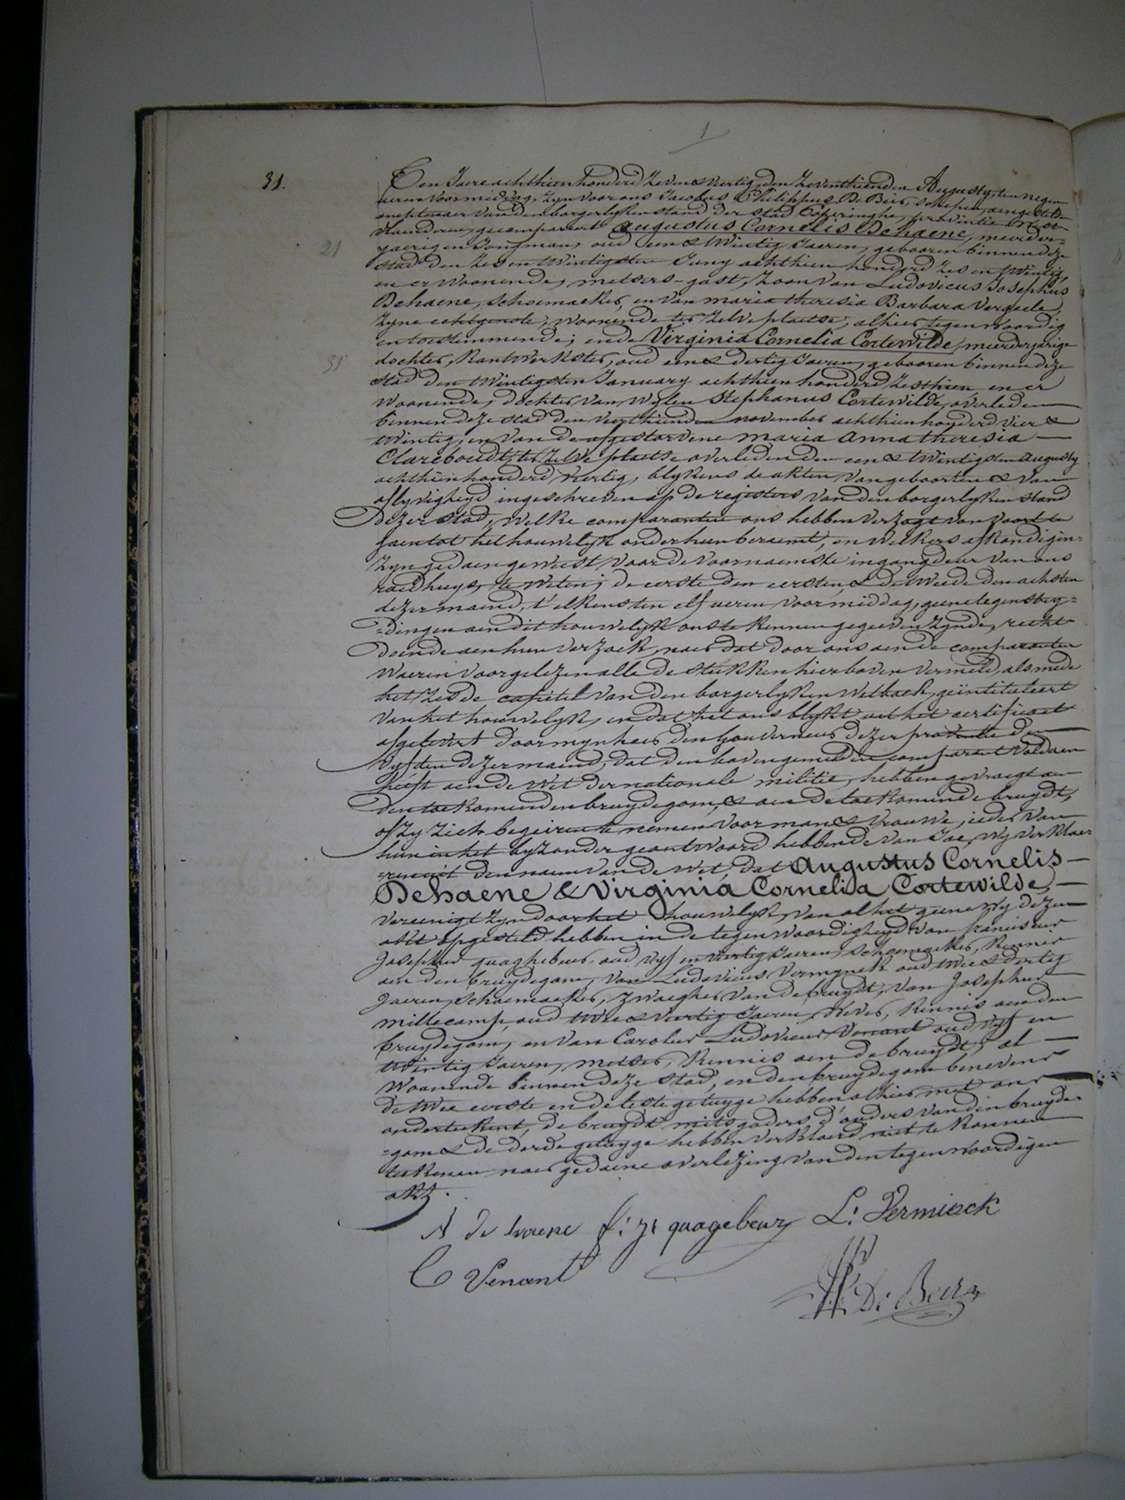 1
31.
Den Jaere achthienhonderd zeven & veertig, den zeventhienden Augusty, ten negen
ueren voormiddag, zyn voor ons Jacobus Philippus De Beir, Schepen, aengestelde
amptenaer van den borgerlyken stand der stad Poperinghe, provintie West-
vlaenderen, gecompareert Augustus Cornelis Dehaene, meerder-
21
jaerigen Jongman, oud een & twintig Jaeren, gebooren binnen deze
stad den zes en twintigsten Juny achthien honderd zes en twintig
en er woonende, metsers-gast, zoon van Ludovicus Josephus
Dehaene, schoemaeker, en van maria theresia Barbara Vergeele,
zyne echtgenote, woonende ter zelve plaetse, alhier tegenwoordig
en toestemmende; ende Virginia Cornelia Cortewilde, meerderjarige
31
dochter, kantwerkster, oud een & dertig Jaeren, gebooren binnen deze
stad den twintigsten January achthien honderd zesthien en er
woonende, dochter van wylen Stephanus Cortewilde, overleden
binnen deze stad den november achthienhonderd vier &
twintig, en van de afgestorvene maria anna theresia
Clareboudt, ter zelve plaetse overleden den een & twintigsten augusty
achthienhonderd veertig, blykens de akten van geboorten & van
aflyvigheyd ingeschreven op de registers van den borgerlyken stand
dezer stad, welke comparanten ons hebben verzogt van voort te
gaen tot het houwelyk onder hun beraemt, en welkers afkondigin-
zyn gedaen geweest voor de voornaemste ingangdeur van ons
raedhuys, te weten; de eerste den eersten, & de tweede den achsten
dezer maend, t'elkens ten elf ueren voormiddag, geene tegensbry-
-dingen aen dit houwelyk ons te kennen gegeeven zynde, recht
doende aen hun verzoek, naer dat door ons aen de comparanten
waeren voorgelezen alle de stukken hierboven vermeld, alsmede
het zesde capitel van den borgerlyken wetboek, geintituleert
van het houwelyk, en dat het ons blykt uit het certificaet
afgelevert door mynheer den gouverneur dezer provintie den
vyfden dezer maend, dat den bovengemelden comparant voldaen
heeft aen de wet der nationale militie, hebben gevraegt aen
den toekomenden bruydegom, & aen de toekomende bruydt,
of zy zich begeiren te nemen voor man & vrouwe, ieder van
hun in het byzonder geantwoord hebbende van Jae, wy verklaer
den naem van de wet, dat Augustus Cornelis
Dehaene & Virginia Cornelia Cortewilde,
vereenigt zyn door het houwelyk, van al het geene wy dezen
akt opgesteld hebben in de tegenwoordigheyd van franciscus
Josephus quaghebeur, oud vyf en veertig Jaeren, schoemaeker, kennis
aen den bruydegom, van Ludovicus Vermynck oud twee & dertig
Jaeren, schoemaeker, zwaegher van de bruydt, van Josephus
millecamp, oud twee & veertig Jaeren, kennis aen den
bruydegom, en van Carolus Ludovicus Venant oud vyf en
twintig Jaeren, metser, kennis aen de bruydt, al
woonende binnen deze stad, en den bruydegom benevens
de twee eerste en de leste getuyge hebben alhier met ons
onderteekent, de bruydt mitsgaders d'ouders van den bruyde-
-gom & de derde getuyge hebben verklaerd niet te konnen
teekenen naer gedaene overlezing van den tegenwoordigen
akt.
A de haene f: js quagebeur L: Vermiack
C Venant
JPh. De Beir